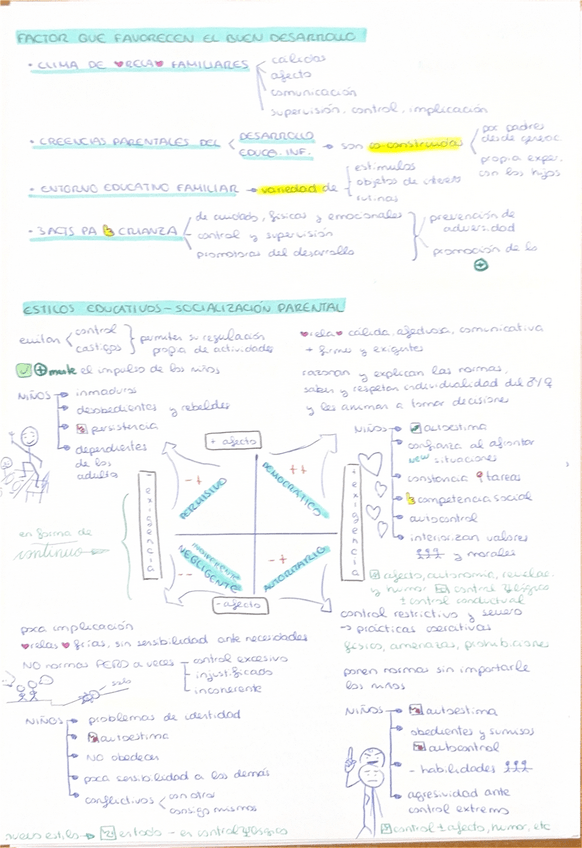 FACTOR QUE FAVORECEN EL BUEN DESARROLLO
· CLIMA DE RELA FAMILIARES
cálidas
afecto
comunicación
supervisión, control, implicación
· CREENCIAS PARENTALES DEL
DESARROLLO
EDUCA. INF.
son co-construcción
por padres
desde
propia exper.
con los hijos
· ENTORNO EDUCATIVO FAMILIAR
variedad de
estímulos
objetos de interés
rutinas
· 3 ACTS PA CRIANZA
de cuidados, físicas y emocionales
control y supervisión
promotoras del desarrollo
prevención de
adversidad
promoción de lo
+
ESTILOS EDUCATIVOS - SOCIALIZACIÓN PARENTAL
evitan
control
castigos
permiten su regulación
propia de actividades
+mente el impulso de los niños
NIÑOS
inmaduros
desobedientes y rebeldes
persistencia
dependientes
de los
adultos
rela cálida, afectuosa, comunicativa
+ firmes y exigentes
razonan y explican las normas,
saben y respetan individualidad del
y les animan a tomar decisiones
NIÑOS
autoestima
confianza al afrontar
new situaciones
constancia tareas
competencia social
autocontrol
interiorizan valores
y morales
+ afecto
- exigencia
+ exigencia
- afecto
- +
PERMISIVO
+ +
DEMOCRÁTICO
- -
INDIFERENTE
NEGLIGENTE
- +
AUTORITARIO
en forma de
continuo
afecto, autonomía, revelac.
y humor control Ψlógico
± control conductual
poca implicación
relas frías, sin sensibilidad ante necesidades
NO normas PERO a veces
control excesivo
injustificado
incoherente
solo
NIÑOS
problemas de identidad
autoestima
NO obedecen
poca sensibilidad a los demás
conflictivos
con otros
consigo mismos
control restrictivo y severo
→ prácticas coercitivas
físico, amenazas, prohibiciones
ponen normas sin importarle
los niños
NIÑOS
autoestima
obedientes y sumisos
autocontrol
- habilidades
agresividad ante
control extremo
nuevo estilo en todo - en control Ψlógico
control ± afecto, humor, etc